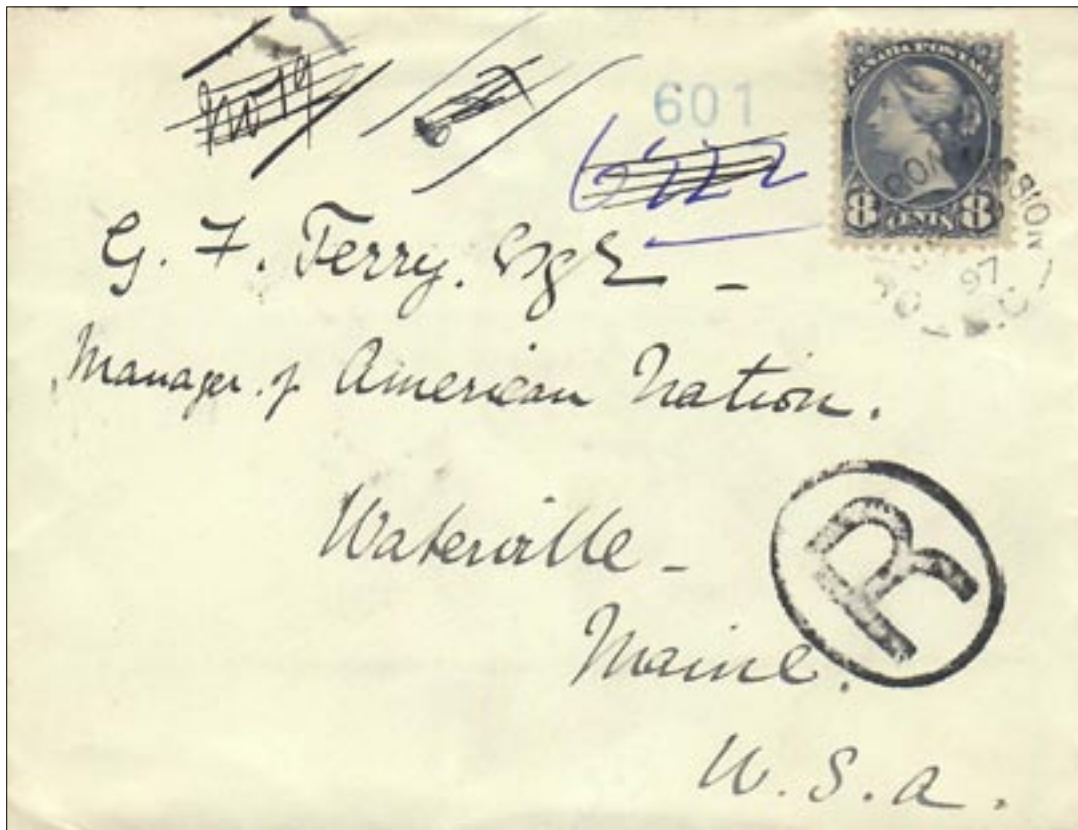 No 19
601
622
CANADA POSTAGE
8 CENTS 8
MISSION
97
B.C.
G. F. Terry. Esqr -
Manager of American Nation.
Waterville -
Maine.
U. S. A.
R